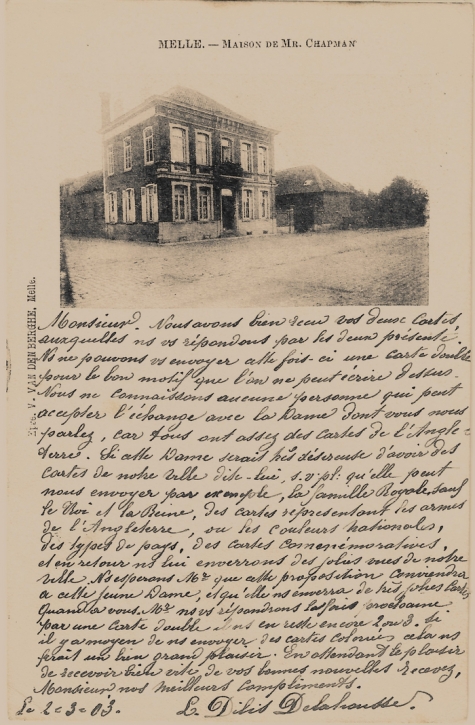 MELLE. — MAISON DE MR. CHAPMAN
V. VAN DEN BERGHE, Melle.
Monsieur. Nous avons bien recu vos deux cartes,
auxquelles ns vs répondons par les deux présente.
Ns ne pouvons vs envoyer cette fois-ci une carte double
pour le bon motif que l'on ne peut écrire dessus.
Nous ne connaissons aucune personne qui peut
accepter l'échange avec la Dame dont vous nous
parlez, car tous ont assez des cartes de l'Angle-
terre. Si cette Dame serait très désireuse d'avoir des
cartes de notre ville dite-lui, s.v.pl. qu'elle peut
nous envoyer par exemple, la famille Royale, sauf
le Roi et la Reine, des cartes représentant les armes
de l'Angleterre, ou les couleurs nationales,
des types de pays, des cartes comémoratives,
et en retour ns lui enverrons des jolis vues de notre
ville. Ns esperons Mr que cette proposition conviendra
a cette jeune Dame, et qu'elle ns enverra de très jolies cartes
Quand a vous Mr ns vs répondrons la fois prochaine
par une carte double ns en reste encore 2 ou 3. Si
il y a moyen de ns envoyer des cartes colories cela ns
ferait un bien grand plaisir. En attendant le plaisir
de recevoir bien vite de vos bonnes nouvelles recevez,
Monsieur nos meilleurs compliments.
Le 2-3-03. L. Dilis Delahousse.